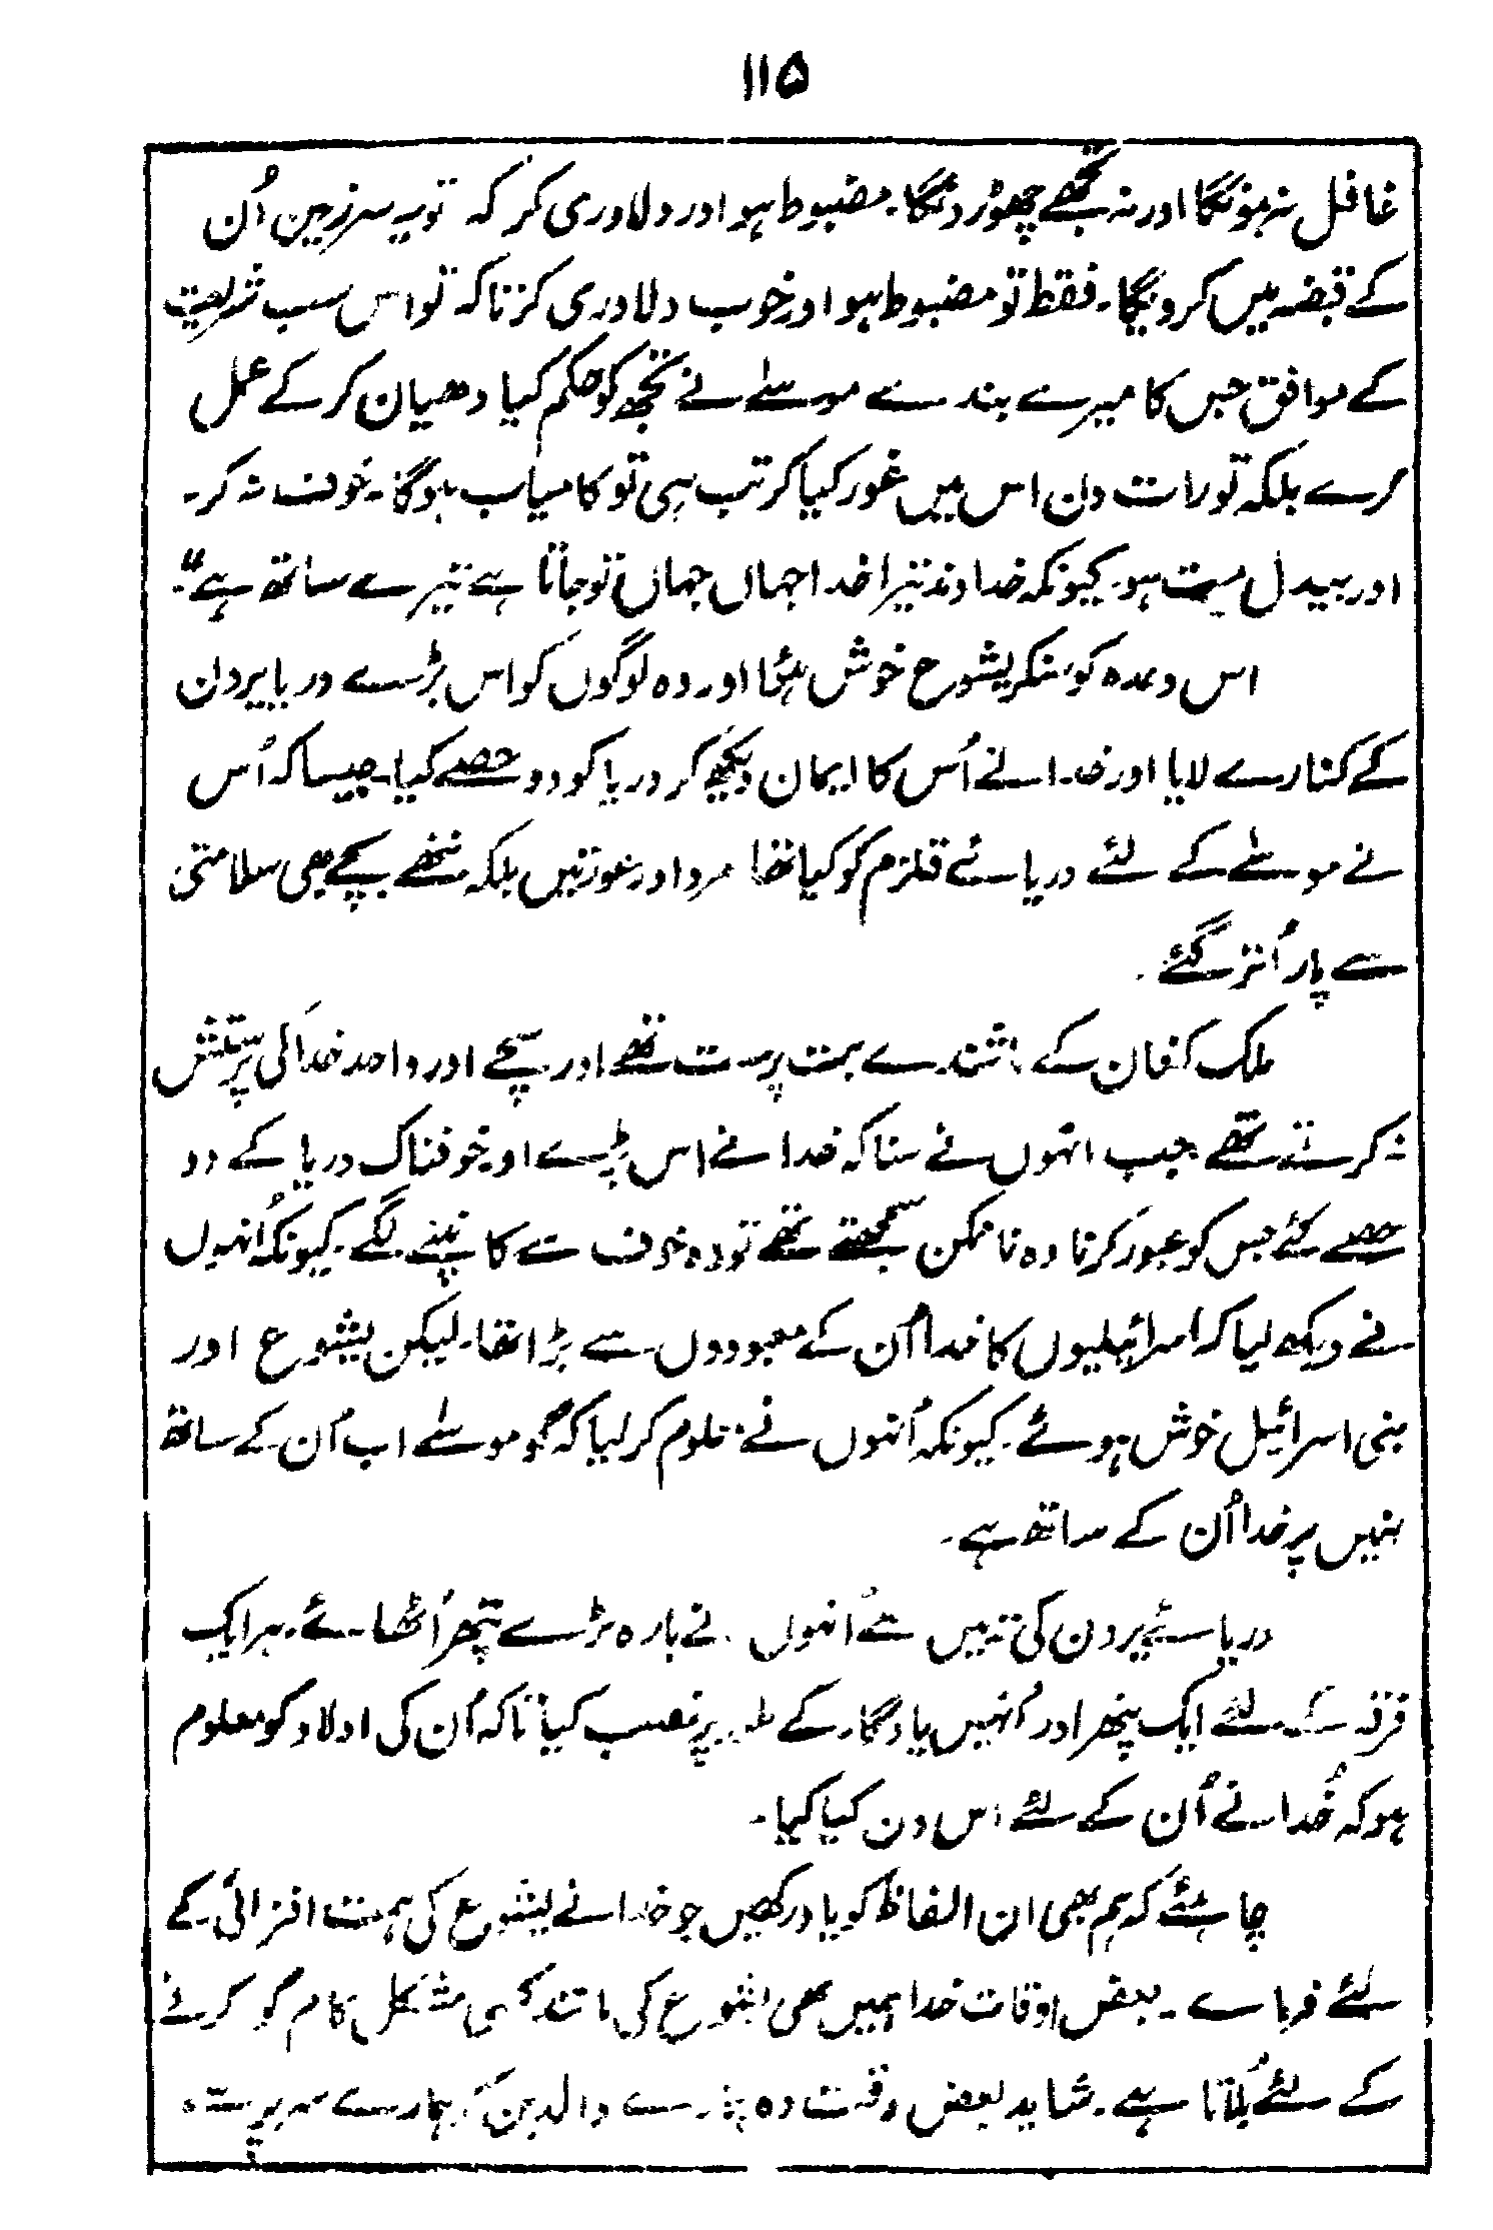 ۱۱۵
غافل نہ ہونگا اور نہ تجھے چھوڑ دونگا۔ مضبوط ہو اور دلاوری کر کہ تو یہ سرزمین اُن
کے قبضہ میں کر دیگا۔ فقط تو مضبوط ہو اور خوب دلاوری کر تا کہ تو اس سب شریعت
کے موافق جس کا میرے بندے موسےٰ نے تجھ کو حکم کیا دھیان کر کے عمل
کرے بلکہ تو رات دن اس میں غور کیا کر تب ہی تو کامیاب ہوگا۔ خوف نہ کر۔
اور بیدل مت ہو۔ کیونکہ خداوند تیرا خدا جہاں جہاں تو جاتا ہے تیرے ساتھ ہے“۔
اس وعدہ کو سنکر یشوع خوش ہئوا اور وہ لوگوں کو اس بڑے دریا یردن
کے کنارے لایا اور خدا نے اُس کا ایمان دیکھ کر دریا کو دو حصے کیا۔ جیسا کہ اُس
نے موسےٰ کے لئے دریائے قلزم کو کیا تھا مرد اور عورتیں بلکہ ننھے بچے بھی سلامتی
سے پار اُتر گئے۔
ملک کنعان کے باشندے بت پرست تھے اور سچے اور واحد خدا کی پرستش
نہ کرتے تھے جب انہوں نے سنا کہ خدا نے اس بڑے اور خوفناک دریا کے دو
حصے کئے جس کو عبور کرنا وہ ناممکن سمجھتے تھے تو وہ خوف سے کانپنے لگے۔ کیونکہ اُنہوں
نے دیکھ لیا کہ اسرائیلیوں کا خدا اُن کے معبودوں سے بڑا تھا۔ لیکن یشوع اور
بنی اسرائیل خوش ہوئے۔ کیونکہ اُنہوں نے معلوم کر لیا کہ گو موسےٰ اب اُن کے ساتھ
نہیں پر خدا اُن کے ساتھ ہے۔
دریائے یردن کی تہ میں سے اُنہوں نے بارہ بڑے پتھر اُٹھائے۔ ہر ایک
فرقہ کے لئے ایک پتھر اور اُنہیں یادگار کے طور پر نصب کیا تاکہ اُن کی اولاد کو معلوم
ہو کہ خُدا نے اُن کے لئے اس دن کیا کیا۔
چاہئے کہ ہم بھی ان الفاظ کو یاد رکھیں جو خدا نے یشوع کی ہمت افزائی کے
لئے فرمائے۔ بعض اوقات خدا ہمیں بھی یشوع کی مانند کسی مشکل کام کو کرنے
کے لئے بُلاتا ہے۔ شاید بعض وقت وہ ہمارے والدین کو ہمارے سر پر سے